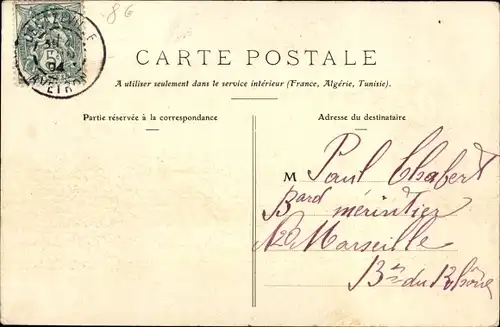 86
DECAZEVILLE
5
04
AVEYRON
CARTE POSTALE
A utiliser seulement dans le service intérieur (France, Algérie, Tunisie).
Partie réservée à la correspondance
Adresse du destinataire
M Paul Chabert
Bard mérintier
N20 Marseille
Bes du Rhône